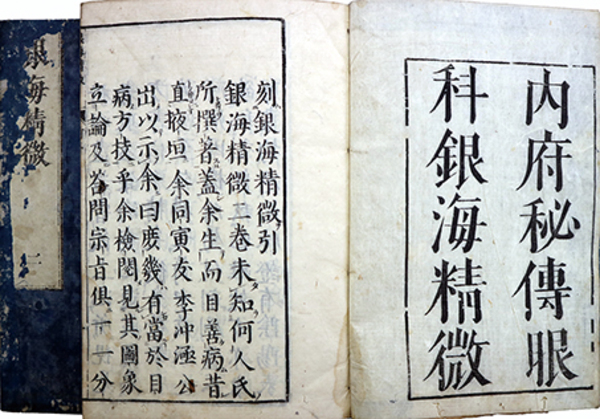 内府秘傳眼
科銀海精微
刻銀海精微引
銀海精微二卷未知何人氏
所撰著蓋余生而目善病昔
直掖垣余同寅友李冲涵公
出以示余曰庶幾有當於目
病方技乎余檢閱見其圖象
立論及荅問宗旨俱一一分
銀海精微 二